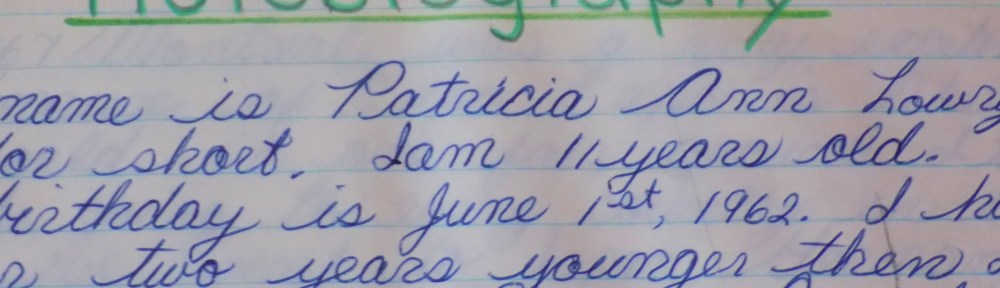 Autobiography
name is Patricia Ann Lowry
for short. I am 11 years old.
birthday is June 1st, 1962. I
two years younger then